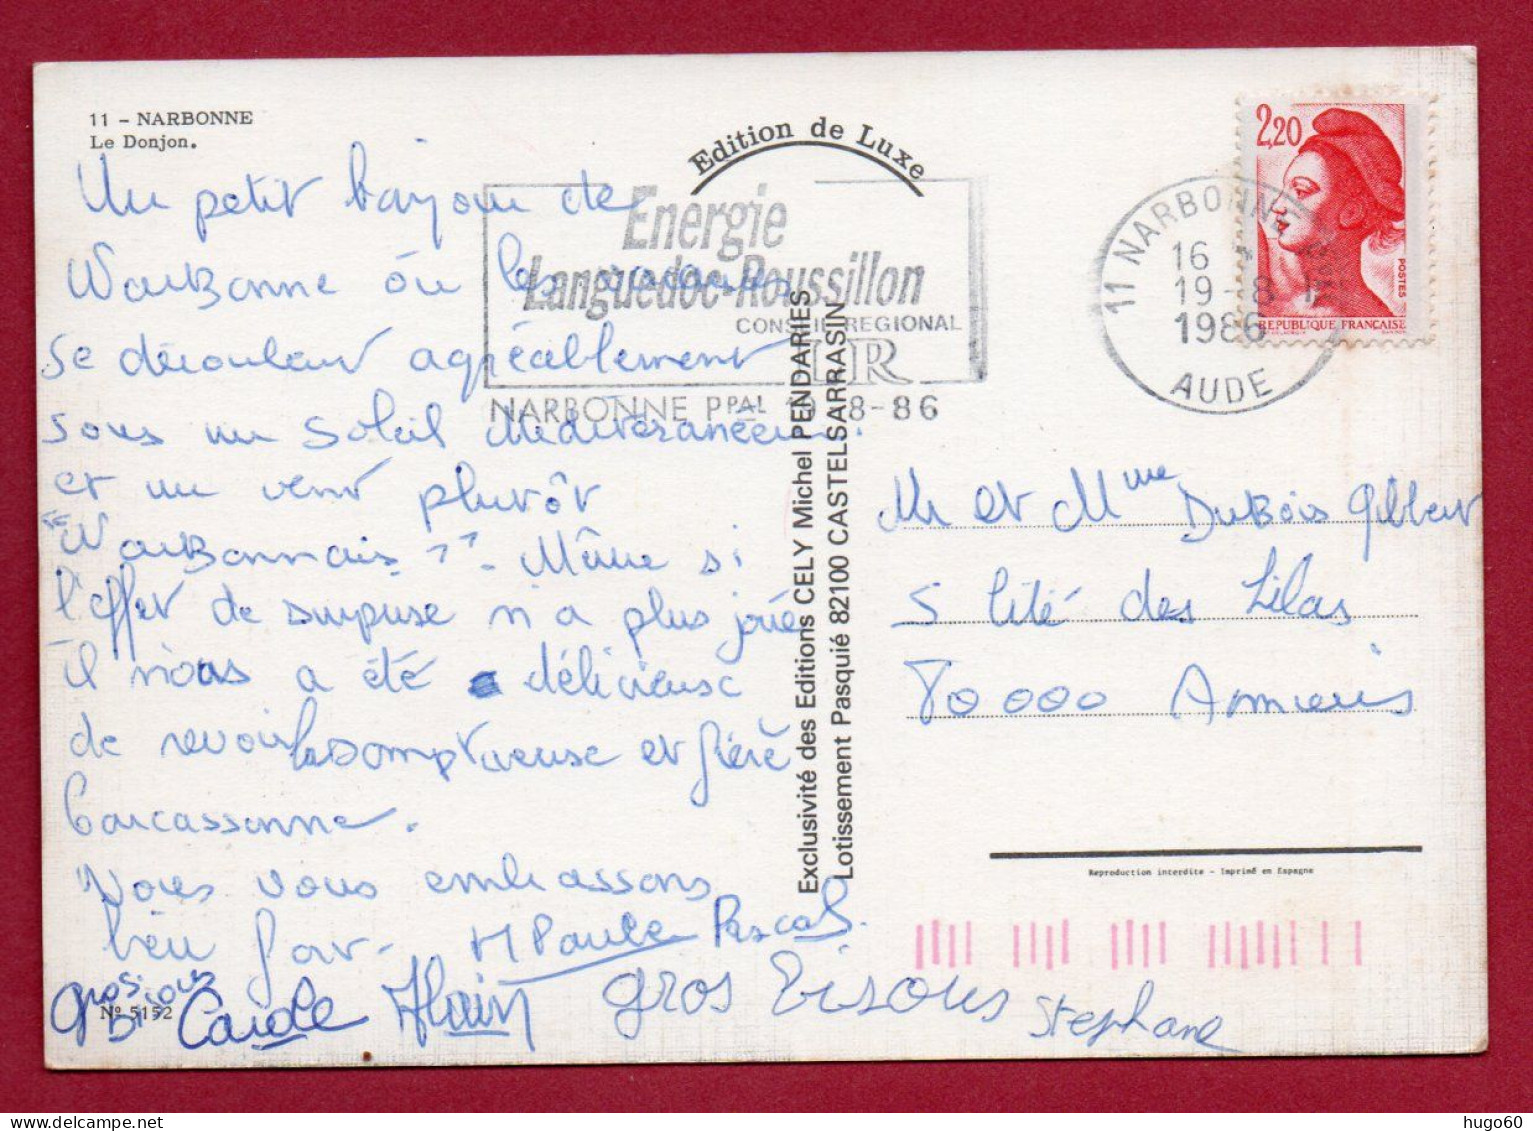 11 - NARBONNE
Le Donjon.
Edition de Luxe
Energie
Languedoc-Roussillon
CONSEIL REGIONAL
LR
NARBONNE PPAL 19-8-86
2,20
POSTES
REPUBLIQUE FRANCAISE
11 NARBONNE
16
19-8
1986
AUDE
Un petit bonjour de
Narbonne où les vacances
se déroulent agréablement
sous un soleil Méditéranéen.
et un vent plutôt
"Narbonnais". Même si
l'effet de surprise n'a plus joué
il nous a été délicieuse
de revoir la somptueuse et fière
Carcassonne.
Nous vous embrassons
bien fort - M Paule Pascal
gros bisous Carole Alain gros bisous Stephane
N° 5152
Exclusivité des Editions CELY Michel PENDARIES
Lotissement Pasquié 82100 CASTELSARRASIN
Mr et Mme DuBois Gilbert
5 Cité des Lilas
80000 Amiens
Reproduction interdite - Imprimé en Espagne
hugo60